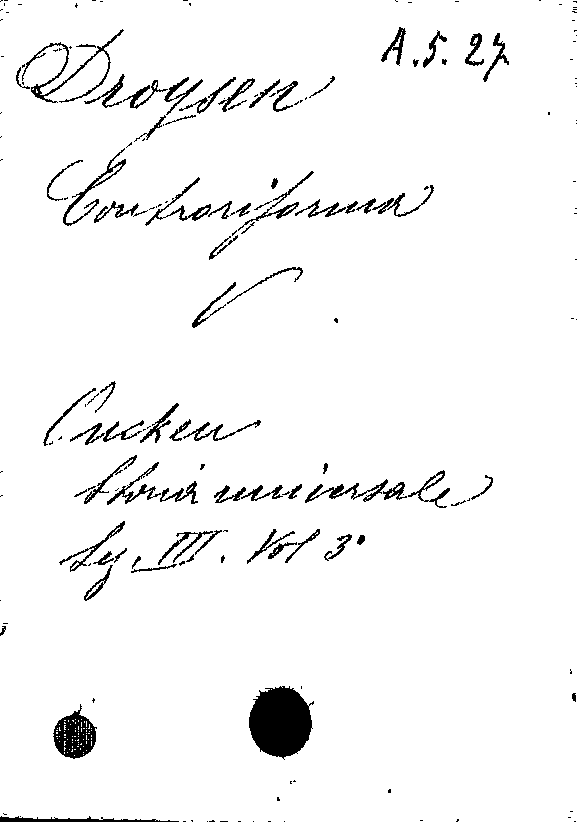 A.5.27
Droysen
Controriforma
V
Oncken
Storia universale
Sez. III. Vol 3°